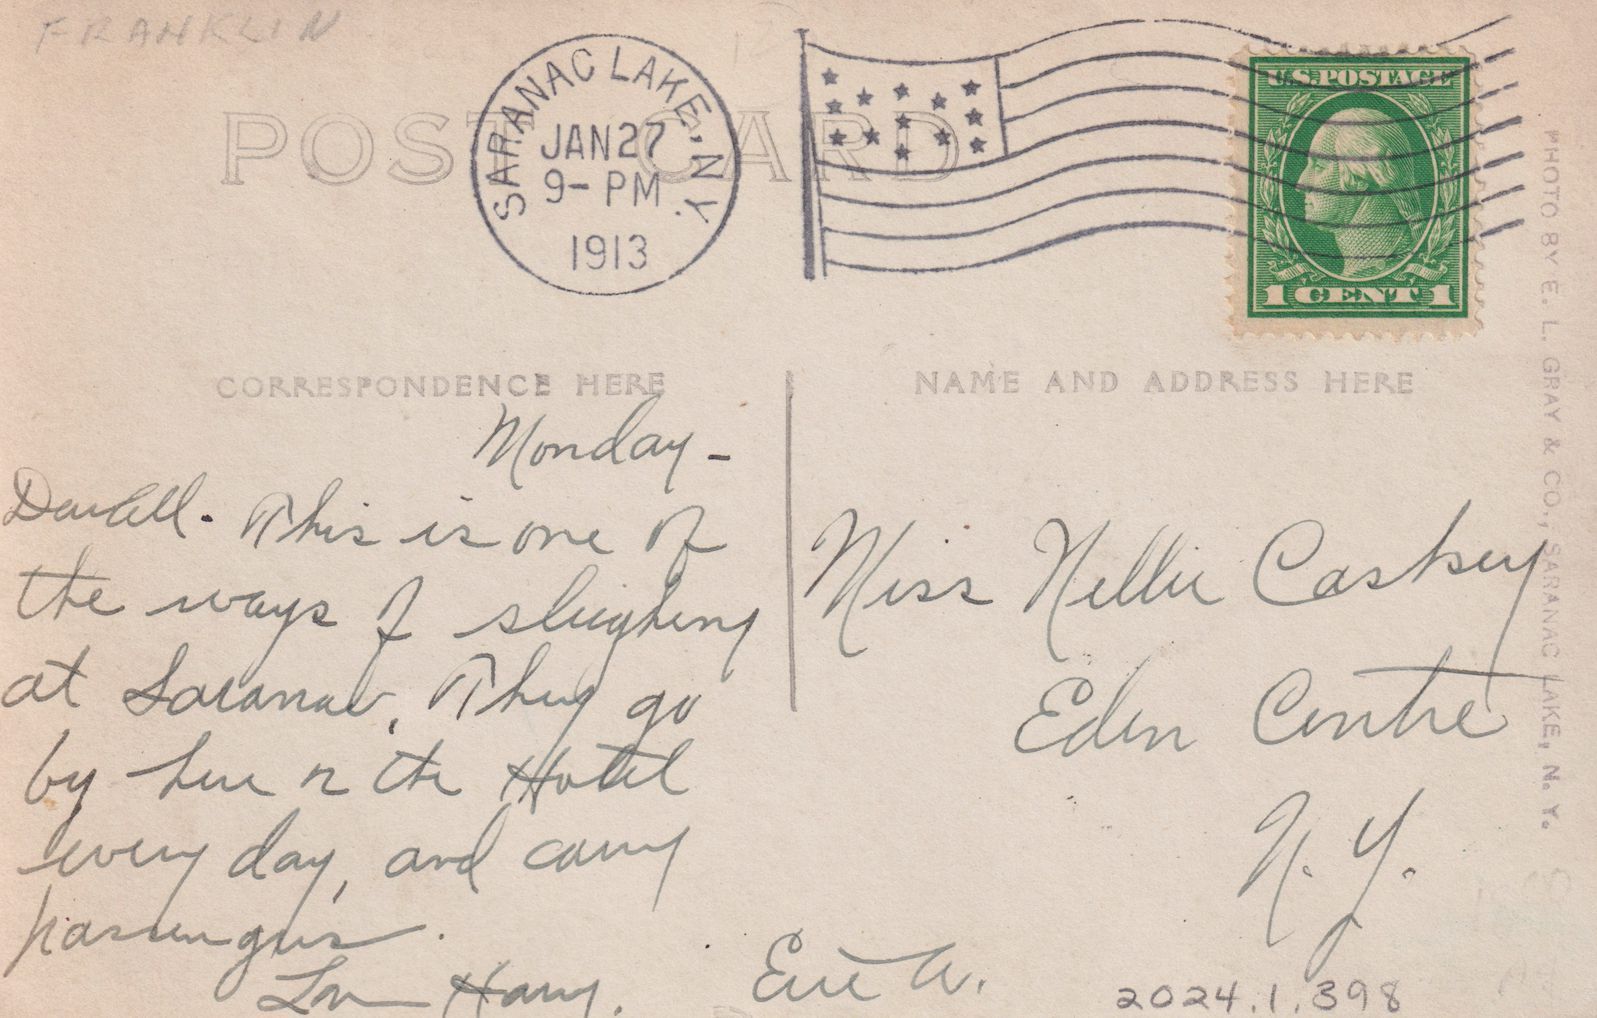 FRANKLIN
POST CARD
SARANAC LAKE, N.Y.
JAN 27
9- PM
1913
U.S. POSTAGE
1 CENT 1
CORRESPONDENCE HERE
NAME AND ADDRESS HERE
PHOTO BY E. L. GRAY & CO., SARANAC LAKE, N. Y.
Monday -
This is one of
the ways of sleighing
at Saranac. They go
by here n the Hotel
every day, and carry
passengers.
Harry.
Miss Nellie Caskey
Eden Centre
N. Y.
Erie Co.
2024.1.398